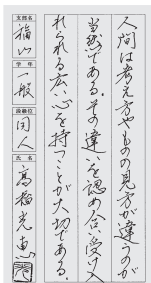 人間は考え方やものの見方が違うのが
当然である。その違いを認め合い受け入
れられる広い心を持つことが大切である。
支部名
楷山
学年
一般
段級位
同人
氏名
高橋光惠